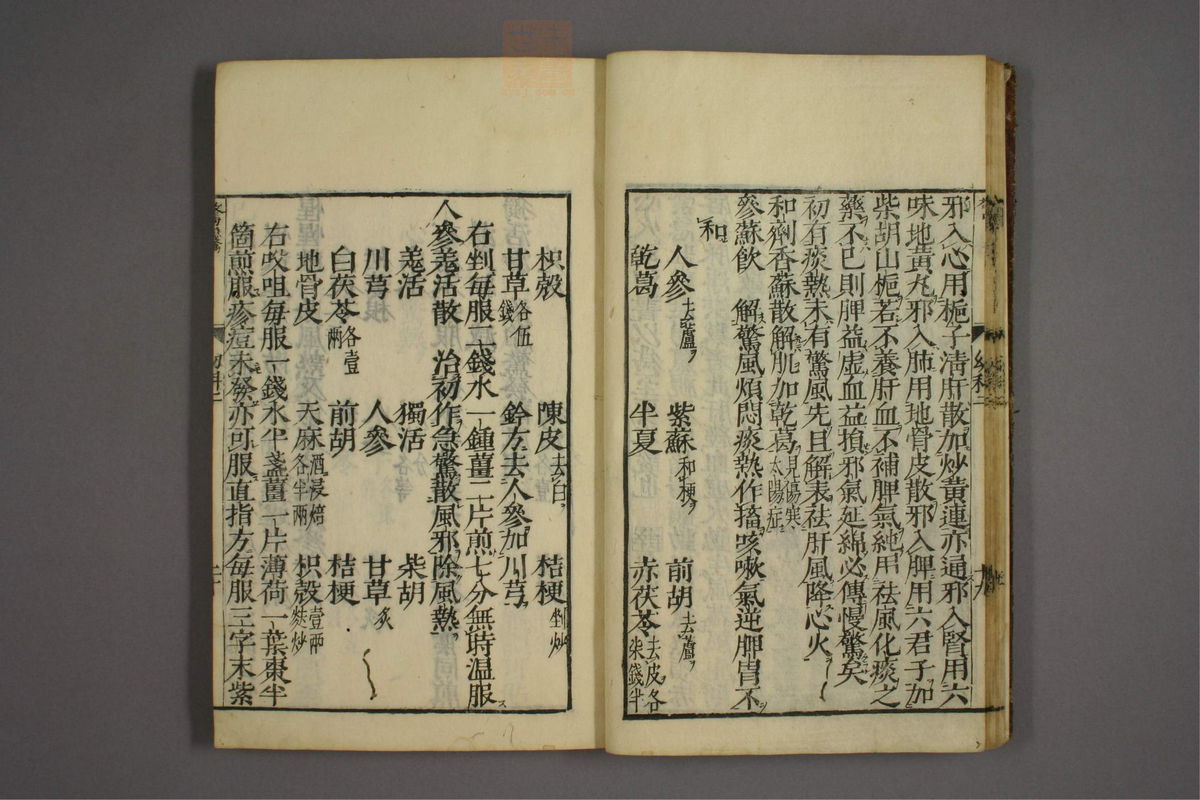 邪入心用梔子清肝散加炒黃連亦通邪入腎用六
味地黃丸邪入肺用地骨皮散邪入脾用六君子加
柴胡山梔若不養肝血不補脾氣純用祛風化痰之
藥不已則脾益虛血益損邪氣延綿必傳慢驚矣
初有痰熱未有驚風先且解表祛肝風降心火
和劑香蘇散解肌加乾葛見傷寒太陽症
參蘇飲 解驚風煩悶痰熱作搐咳嗽氣逆脾胃不
和
人參去蘆 紫蘇和梗 前胡去蘆
乾葛 半夏 赤茯苓去皮各柒錢半
枳殼 陳皮去白 桔梗剉炒
甘草各伍錢 鈐方去人參加川芎
右剉每服二錢水一鍾薑二片煎七分無時温服
人參羗活散 治初作急驚散風邪除風熱
羗活 獨活 柴胡
川芎 人參 甘草炙
白茯苓各壹兩 前胡 桔梗
地骨皮 天麻酒浸焙各半兩 枳殼壹兩麩炒
右㕮咀每服一錢水半盞薑一片薄荷一葉棗半
箇煎服疹痘未發亦可服直指方每服三字末紫
幼科